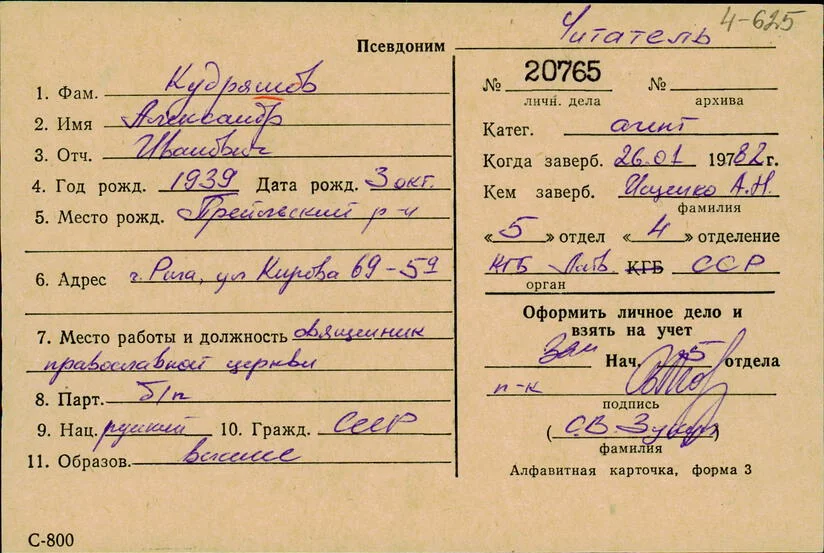 4-625
Псевдоним Читатель
1. Фам. Кудряшов
2. Имя Александр
3. Отч. Иванович
4. Год рожд. 1939 Дата рожд. 3 окт.
5. Место рожд. Прейльский р-н
6. Адрес г. Рига, ул Кирова 69-59
7. Место работы и должность священник
православной церкви
8. Парт. б/п
9. Нац. русский 10. Гражд. СССР
11. Образов. высшее
С-800
№ 20765 №
личн. дела архива
Катег. агент
Когда заверб. 26.01 19782 г.
Кем заверб. Ищенко А.Н.
фамилия
«5» отдел «4» отделение
КГБ Латв. КГБ ССР
орган
Оформить личное дело и
взять на учет
Зам Нач. 5 отдела
п-к
подпись
(С.В. )
фамилия
Алфавитная карточка, форма 3